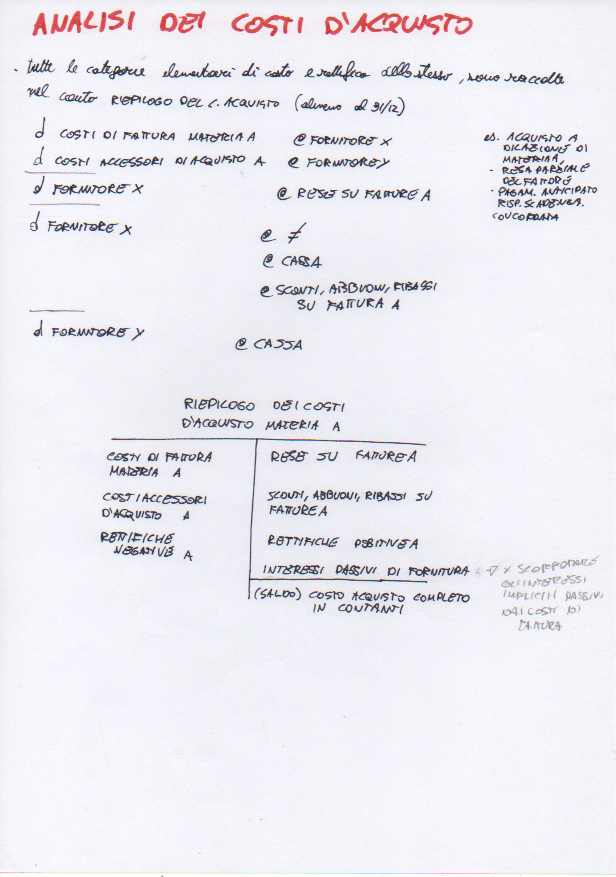 ANALISI DEI COSTI D'ACQUISTO
- tutte le categorie elementari di costo e rettifica dello stesso, sono raccolte
nel conto RIEPILOGO DEL C. ACQUISTO (almeno al 31/12)
d COSTI DI FATTURA MATERIA A @ FORNITORE X
d COSTI ACCESSORI DI ACQUISTO A @ FORNITORE Y
d FORNITORE X @ RESE SU FATTURE A
d FORNITORE X
@ ≠
@ CASSA
@ SCONTI, ABBUONI, RIBASSI
SU FATTURA A
d FORNITORE Y
@ CASSA
es. ACQUISTO A
DILAZIONE DI
MATERIA A
- RESA PARZIALE
DEL FATTORE
- PAGAM. ANTICIPATO
RISP. SCADENZA
CONCORDATA
RIEPILOGO DEI COSTI
D'ACQUISTO MATERIA A
COSTI DI FATTURA
MATERIA A
COSTI ACCESSORI
D'ACQUISTO A
RETTIFICHE
NEGATIVE A
RESE SU FATTURE A
SCONTI, ABBUONI, RIBASSI SU
FATTURE A
RETTIFICHE POSITIVE A
INTERESSI PASSIVI DI FORNITURA
(SALDO) COSTO ACQUISTO COMPLETO
IN CONTANTI
x SCORPORARE
GLI INTERESSI
IMPLICITI PASSIVI
DAI COSTI DI
FATTURA